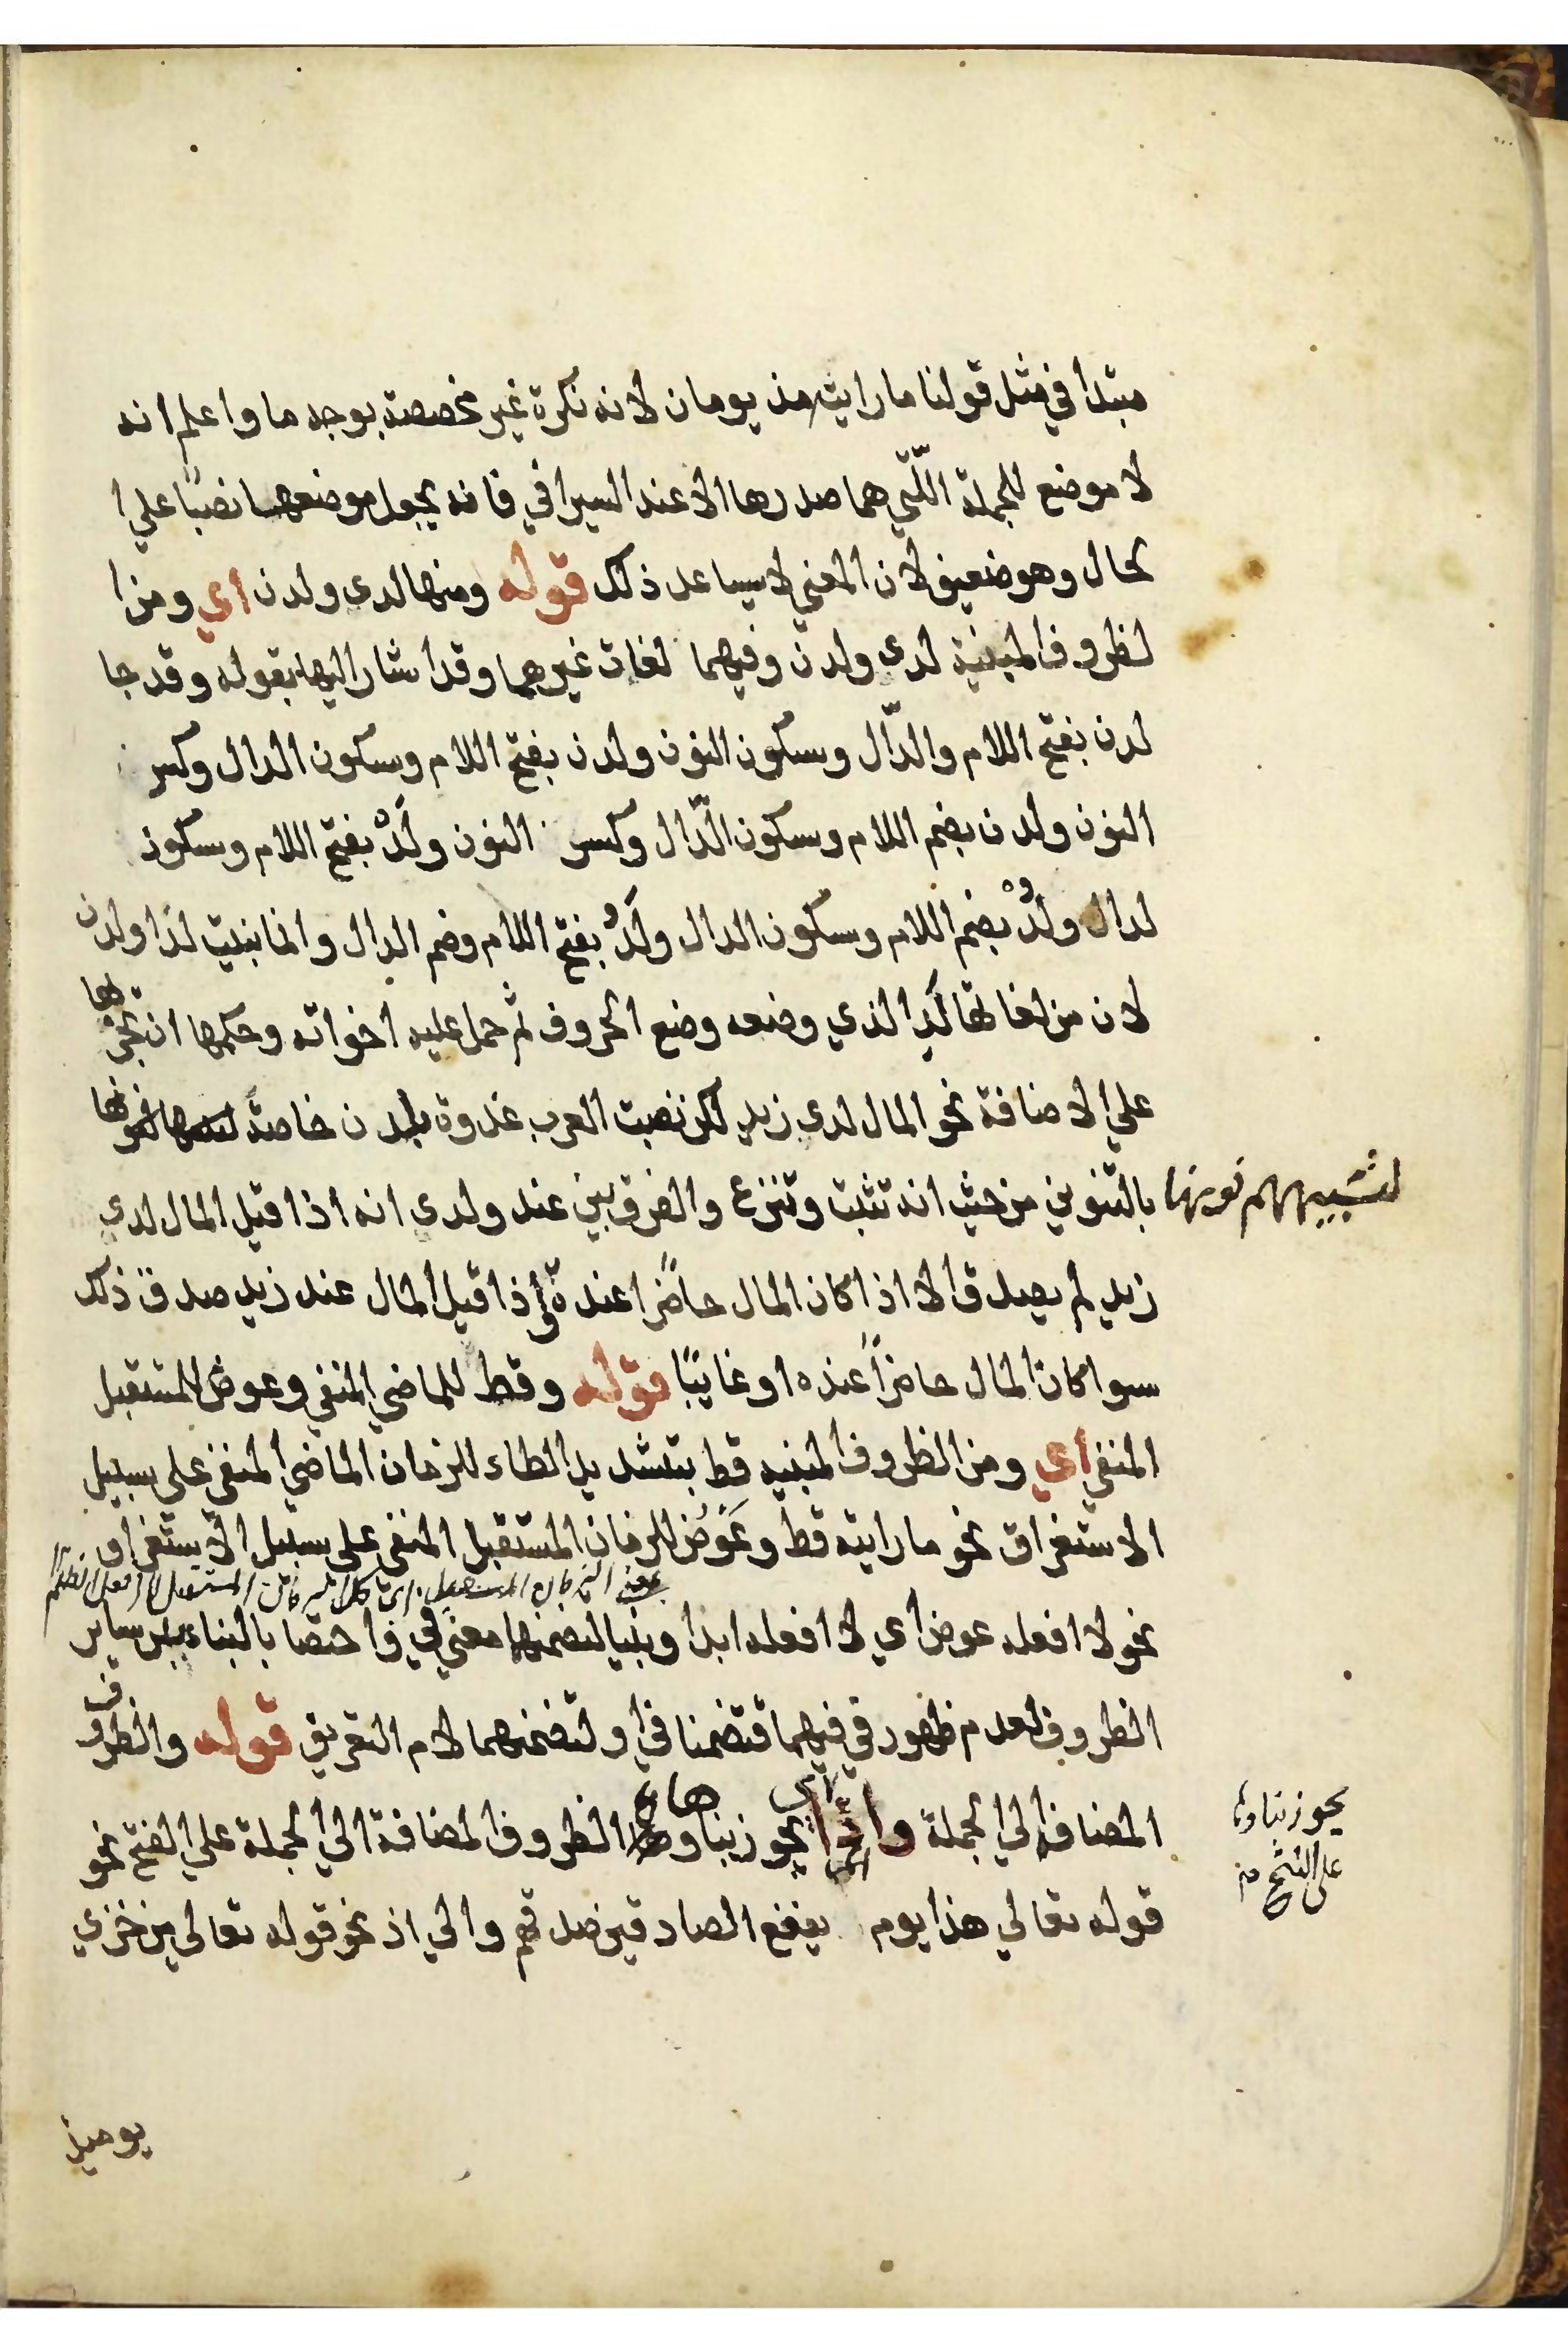 مبتدا في مثل قولنا ما رايته مذ يومان لانه نكرة غير مخصصة بوجه ما واعلم انه
لا موضع للجملة اللّتي هما صدرها الا عند السيرافي فانه يجعل موضعها نصبًا علي ا
لحال وهو ضعيف لان المعني لا يساعد ذلك قوله ومنها لدى ولدن اي ومن ا
لظروف المبنية لدى ولدن وفيهما لغات غيرهما وقد اشار اليها بقوله وقد جا
لدن بفتح اللام والدّال وسكون النون ولدن بفتح اللام وسكون الدال وكسر
النون ولدن بضم اللام وسكون الدّال وكسر النون ولَدْ بفتح اللام وسكون
لدال ولُدْ بضم اللام وسكون الدال ولَدُ بفتح اللام وضم الدال وانما بنيت لدا ولدن
لان من لغاتها لَد الذي وضعه وضع الحروف ثم حمل عليه اخواته وحكمها ان تجر بها
علي الاضافة نحو المال لدى زيد لكن نصبت العرب غدوة بلدن خاصة
لتشبيههم نونها بالتنوين من حيث انه تثبت وتنزع والفرق بين عند ولدى انه اذا قيل المال لدى
زيد لم يصدق الا اذا كان المال حاضرًا عنده واذا قيل المال عند زيد صدق ذلك
سوا كان المال حاضرًا عنده او غايبًا قوله وقط للماضي المنفي وعوض للمستقبل
المنفي اي ومن الظروف المبنيه قط بتشديد الطاء للزمان الماضي المنفي علي سبيل
الاستغراق نحو ما رايته قط وعَوْضُ للزمان المستقبل المنفي على سبيل الاستغراق
نحو لا افعله عوض اي لا افعله ابدا وبنيا لتضمنهما معني في واختصا بالبناء من بين ساير
الظروف لعدم ظهور في فيهما فتضمنا في او لتضمنهما لام التعريف قوله والظروف
المضافة الي الجملة واذ اي يجوز بناوها اي الظروف المضافة الي الجملة علي الفتح نحو
يجوز بناوها
على الفتح
قوله تعالي هذا يوم ينفع الصادقين صدقهم والي اذ نحو قوله تعالى من خزي
يوميذ